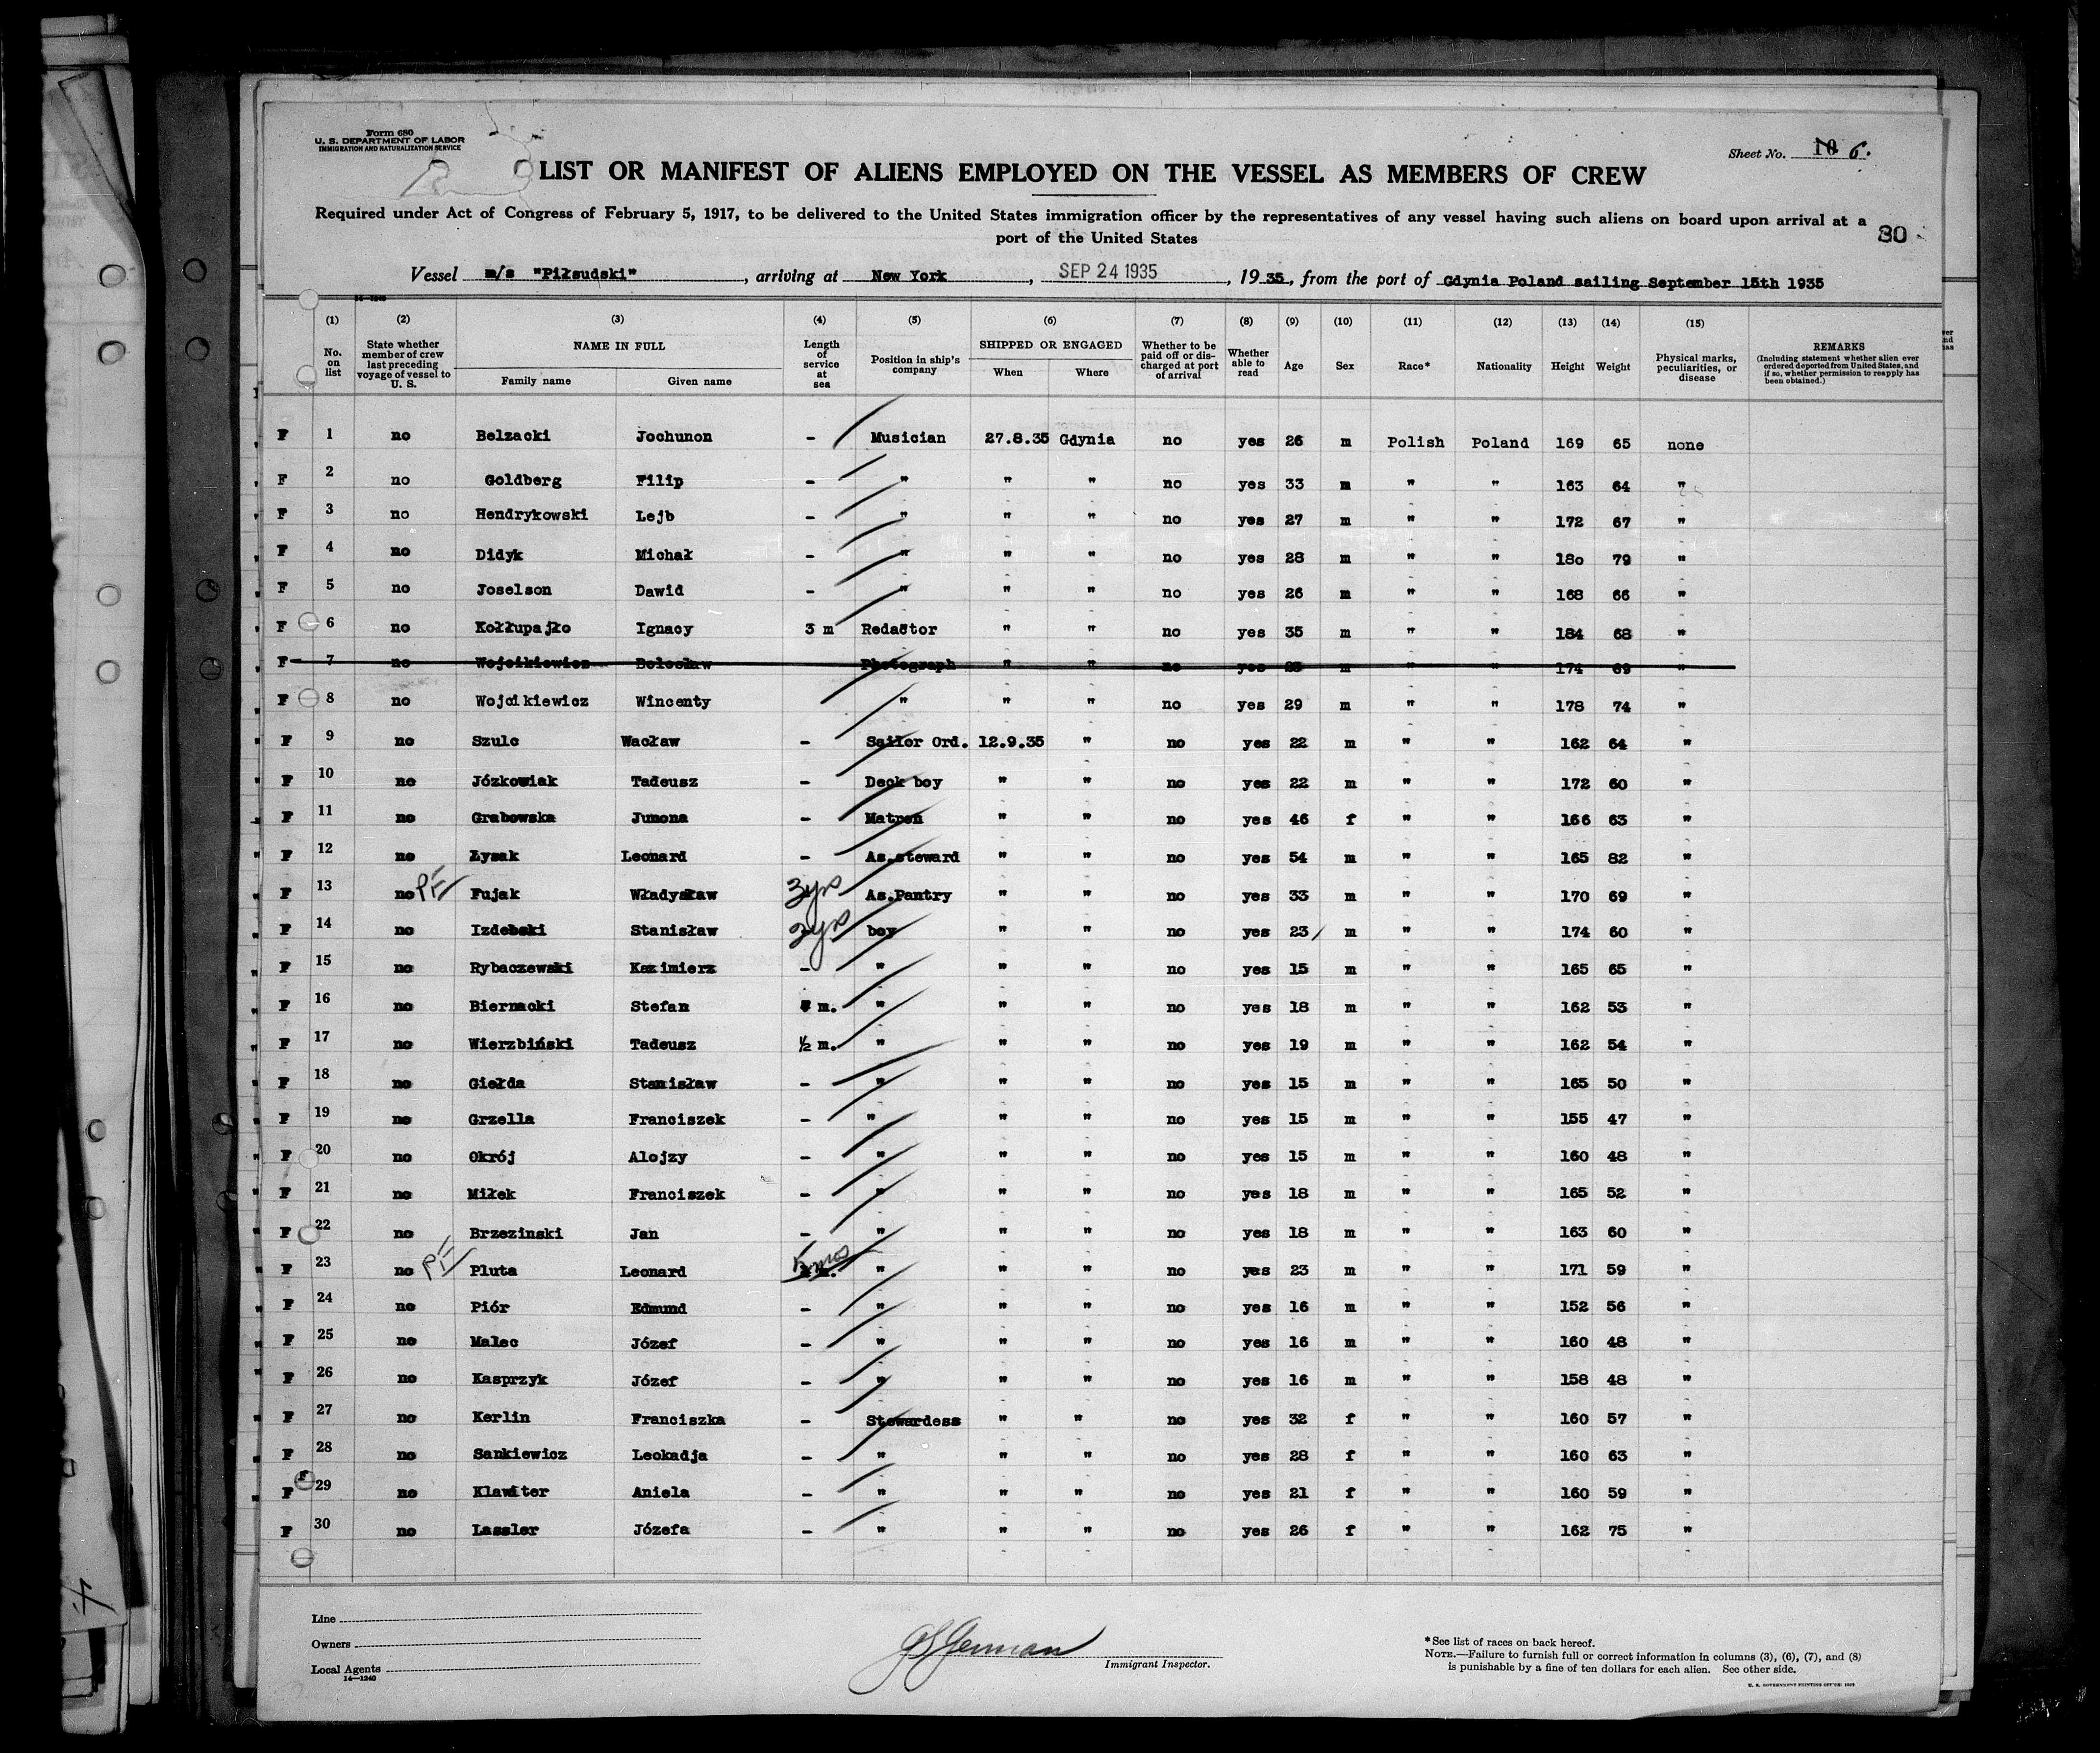 Form 680
U. S. DEPARTMENT OF LABOR
IMMIGRATION AND NATURALIZATION SERVICE
Sheet No. 10 6.
LIST OR MANIFEST OF ALIENS EMPLOYED ON THE VESSEL AS MEMBERS OF CREW
Required under Act of Congress of February 5, 1917, to be delivered to the United States immigration officer by the representatives of any vessel having such aliens on board upon arrival at a
port of the United States
30
Vessel m/s "Piłsudski", arriving at New York, SEP 24 1935, 1935, from the port of Gdynia Poland sailing September 15th 1935
(1) (2) (3) (4) (5) (6) (7) (8) (9) (10) (11) (12) (13) (14) (15)
No. on list | State whether member of crew last preceding voyage of vessel to U. S. | NAME IN FULL Family name Given name | Length of service at sea | Position in ship's company | SHIPPED OR ENGAGED When Where | Whether to be paid off or discharged at port of arrival | Whether able to read | Age | Sex | Race* | Nationality | Height | Weight | Physical marks, peculiarities, or disease | REMARKS (Including statement whether alien ever ordered deported from United States, and if so, whether permission to reapply has been obtained.)
F 1 no Belzacki Jochunon - Musician 27.8.35 Gdynia no yes 26 m Polish Poland 169 65 none
F 2 no Goldberg Filip - " " " no yes 33 m " " 163 64 "
F 3 no Hendrykowski Lejb - " " " no yes 27 m " " 172 67 "
F 4 no Didyk Michał - " " " no yes 28 m " " 180 79 "
F 5 no Joselson Dawid - " " " no yes 26 m " " 168 66 "
F 6 no Kołłupajło Ignacy 3 m Redactor " " no yes 35 m " " 184 68 "
F 7 no Wojcikiewicz Bolesław Photograph " " no yes m " " 174 69 "
F 8 no Wojcikiewicz Wincenty " " " no yes 29 m " " 178 74 "
F 9 no Szulc Wacław - Sailor Ord. 12.9.35 " no yes 22 m " " 162 64 "
F 10 no Józkowiak Tadeusz - Deck boy " " no yes 22 m " " 172 60 "
F 11 no Grabowska Junona - Matron " " no yes 46 f " " 166 63 "
F 12 no Łysak Leonard - As.steward " " no yes 54 m " " 165 82 "
F 13 no PE Fujak Władysław 3yrs As.Pantry " " no yes 33 m " " 170 69 "
F 14 no Izdebski Stanisław 2yrs boy " " no yes 23 m " " 174 60 "
F 15 no Rybaczewski Kazimierz - " " " no yes 15 m " " 165 65 "
F 16 no Biernacki Stefan m. " " " no yes 18 m " " 162 53 "
F 17 no Wierzbiński Tadeusz ½ m. " " " no yes 19 m " " 162 54 "
F 18 no Giełda Stanisław - " " " no yes 15 m " " 165 50 "
F 19 no Grzella Franciszek - " " " no yes 15 m " " 155 47 "
F 20 no Okrój Alojzy - " " " no yes 15 m " " 160 48 "
F 21 no Miłek Franciszek - " " " no yes 18 m " " 165 52 "
F 22 no Brzezinski Jan - " " " no yes 18 m " " 163 60 "
F 23 no PE Pluta Leonard 5mos " " " no yes 23 m " " 171 59 "
F 24 no Piór Edmund - " " " no yes 16 m " " 152 56 "
F 25 no Malec Józef - " " " no yes 16 m " " 160 48 "
F 26 no Kasprzyk Józef - " " " no yes 16 m " " 158 48 "
F 27 no Kerlin Franciszka - Stewardess " " no yes 32 f " " 160 57 "
F 28 no Sankiewicz Leokadja - " " " no yes 28 f " " 160 63 "
F 29 no Klawiter Aniela - " " " no yes 21 f " " 160 59 "
F 30 no Lassler Józefa - " " " no yes 26 f " " 162 75 "
Line
Owners
Local Agents
14—1240
Immigrant Inspector.
*See list of races on back hereof.
NOTE.—Failure to furnish full or correct information in columns (3), (6), (7), and (8)
is punishable by a fine of ten dollars for each alien. See other side.